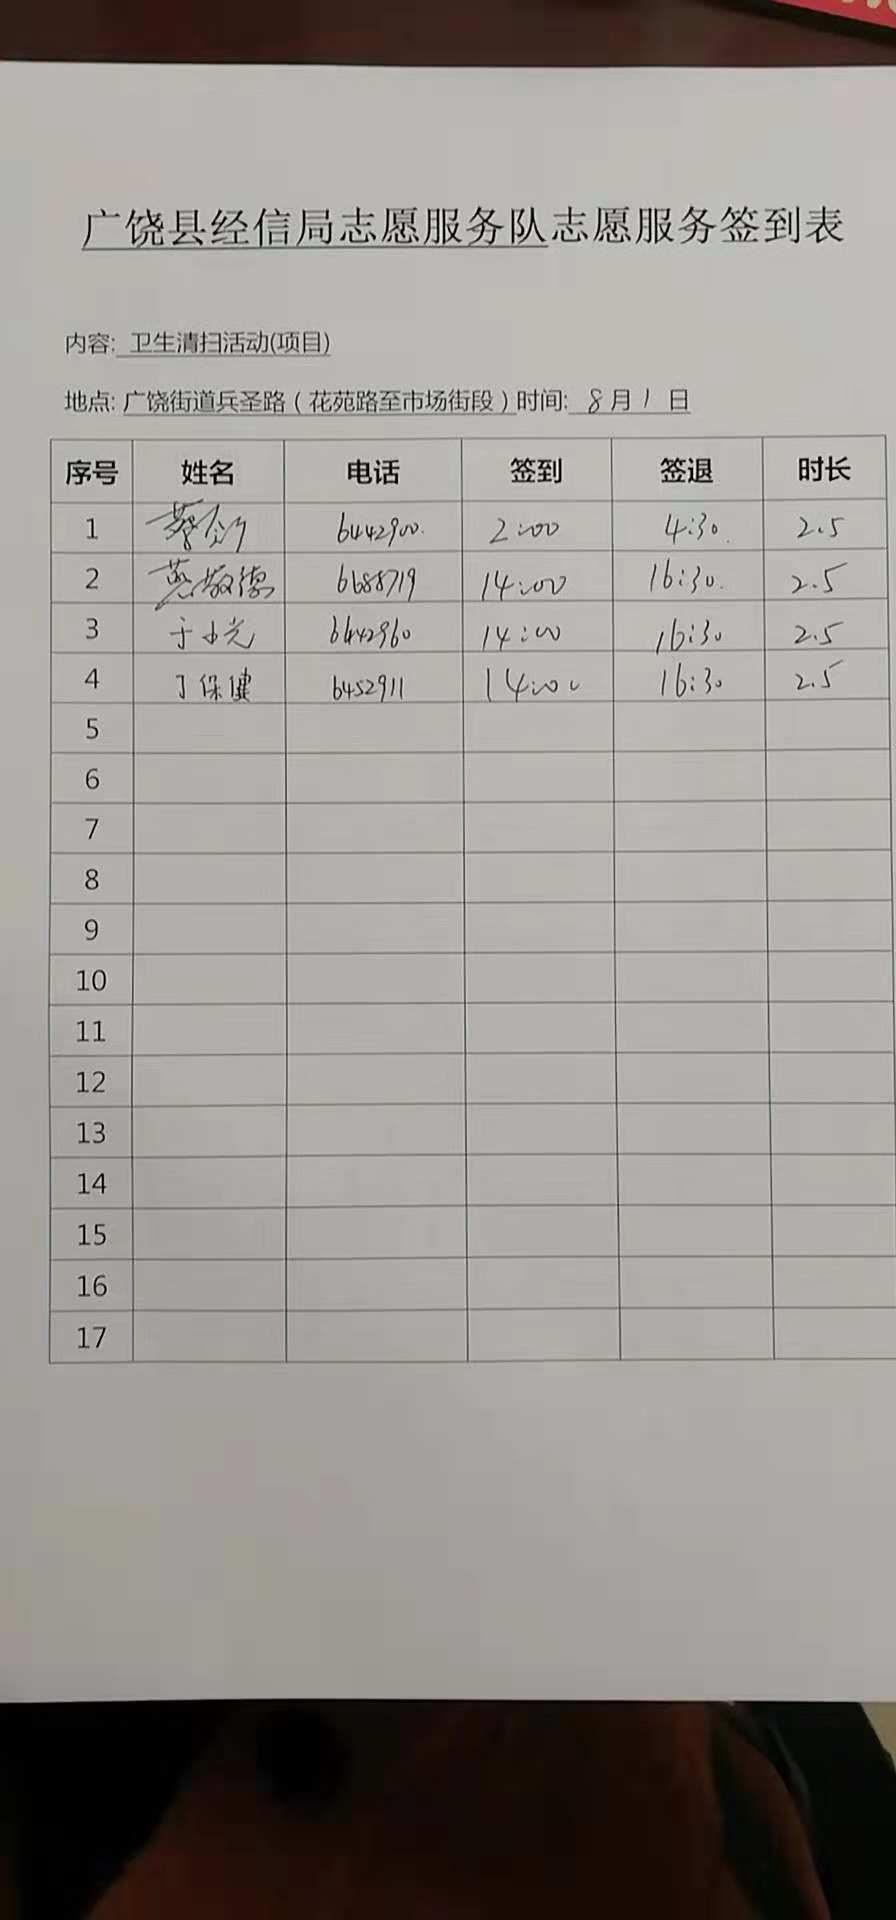 广饶县经信局志愿服务队志愿服务签到表
内容: 卫生清扫活动(项目)
地点: 广饶街道兵圣路（花苑路至市场街段）时间: 8月1日
序号 姓名 电话 签到 签退 时长
1 6442900. 2:00 4:30. 2.5
2 敬德 6688719 14:00 16:30. 2.5
3 于小光 6442960 14:00 16:30 2.5
4 丁保健 6452911 14:00 16:30 2.5
5
6
7
8
9
10
11
12
13
14
15
16
17